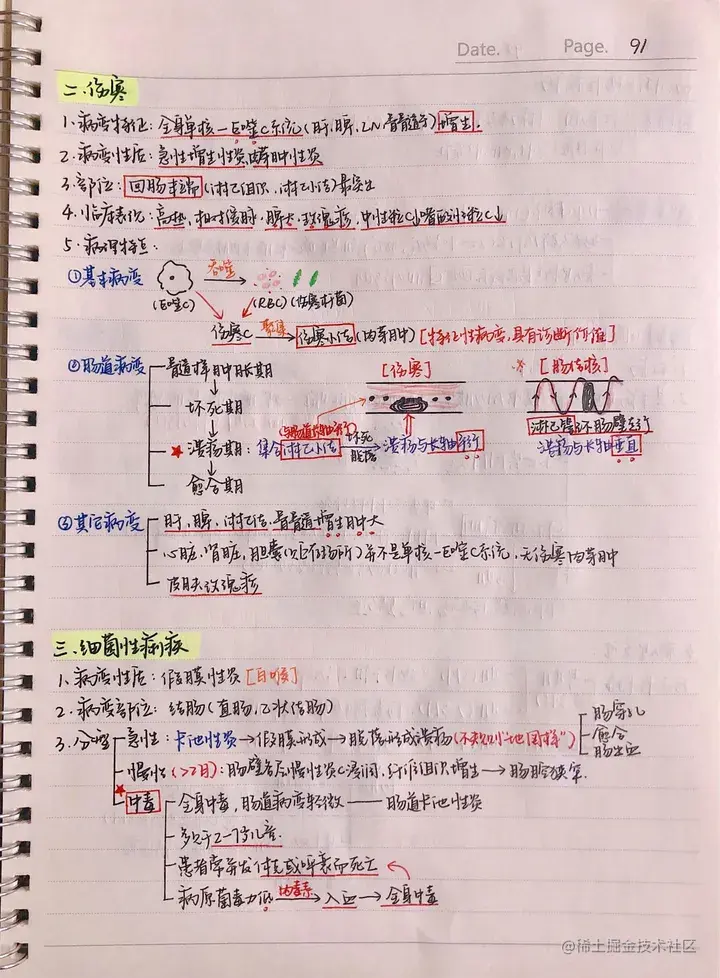 Date. Page. 91
二.伤寒
1.病变特征:全身单核一巨噬C系统(肝.脾.LN.骨髓等)增生.
2.病变性质:急性增生性炎,肉芽肿性炎
3.部位:回肠末端(淋巴组织,淋巴小结)最突出
4.临床表现:高热,相对缓脉.脾大.玫瑰疹.中性粒C↓嗜酸性粒C↓
5.病理特点:
①基本病变 吞噬
(巨噬C) (RBC)(伤寒杆菌)
伤寒C 聚集→ 伤寒小结(肉芽肿)[特征性病变,具有诊断价值]
②肠道病变 髓样肿胀期 [伤寒] [肠结核]
坏死期
淋巴管环肠壁走行
★溃疡期:集合淋巴小结(与肠道长轴平行) 坏死脱落→ 溃疡与长轴平行 溃疡与长轴垂直
愈合期
③其它病变 肝,脾,淋巴结,骨髓增生肿大
心脏,肾脏,胆囊 并不是单核一巨噬C系统.无伤寒肉芽肿
皮肤玫瑰疹
三.细菌性痢疾
1.病变性质:假膜性炎[白喉]
2.病变部位:结肠(直肠,乙状结肠)
3.分型 急性:卡他性炎→假膜形成→脱落形成溃疡(不规则"地图样") 肠穿孔 愈合 肠出血
慢性(>2月):肠壁各层慢性炎C浸润,纤维组织增生→肠腔狭窄.
★中毒 全身中毒,肠道病变轻微——肠道卡他性炎
多见于2-7岁儿童.
患者常并发休克或呼衰而死亡
病原菌毒力低 内毒素→入血→全身中毒
@稀土掘金技术社区